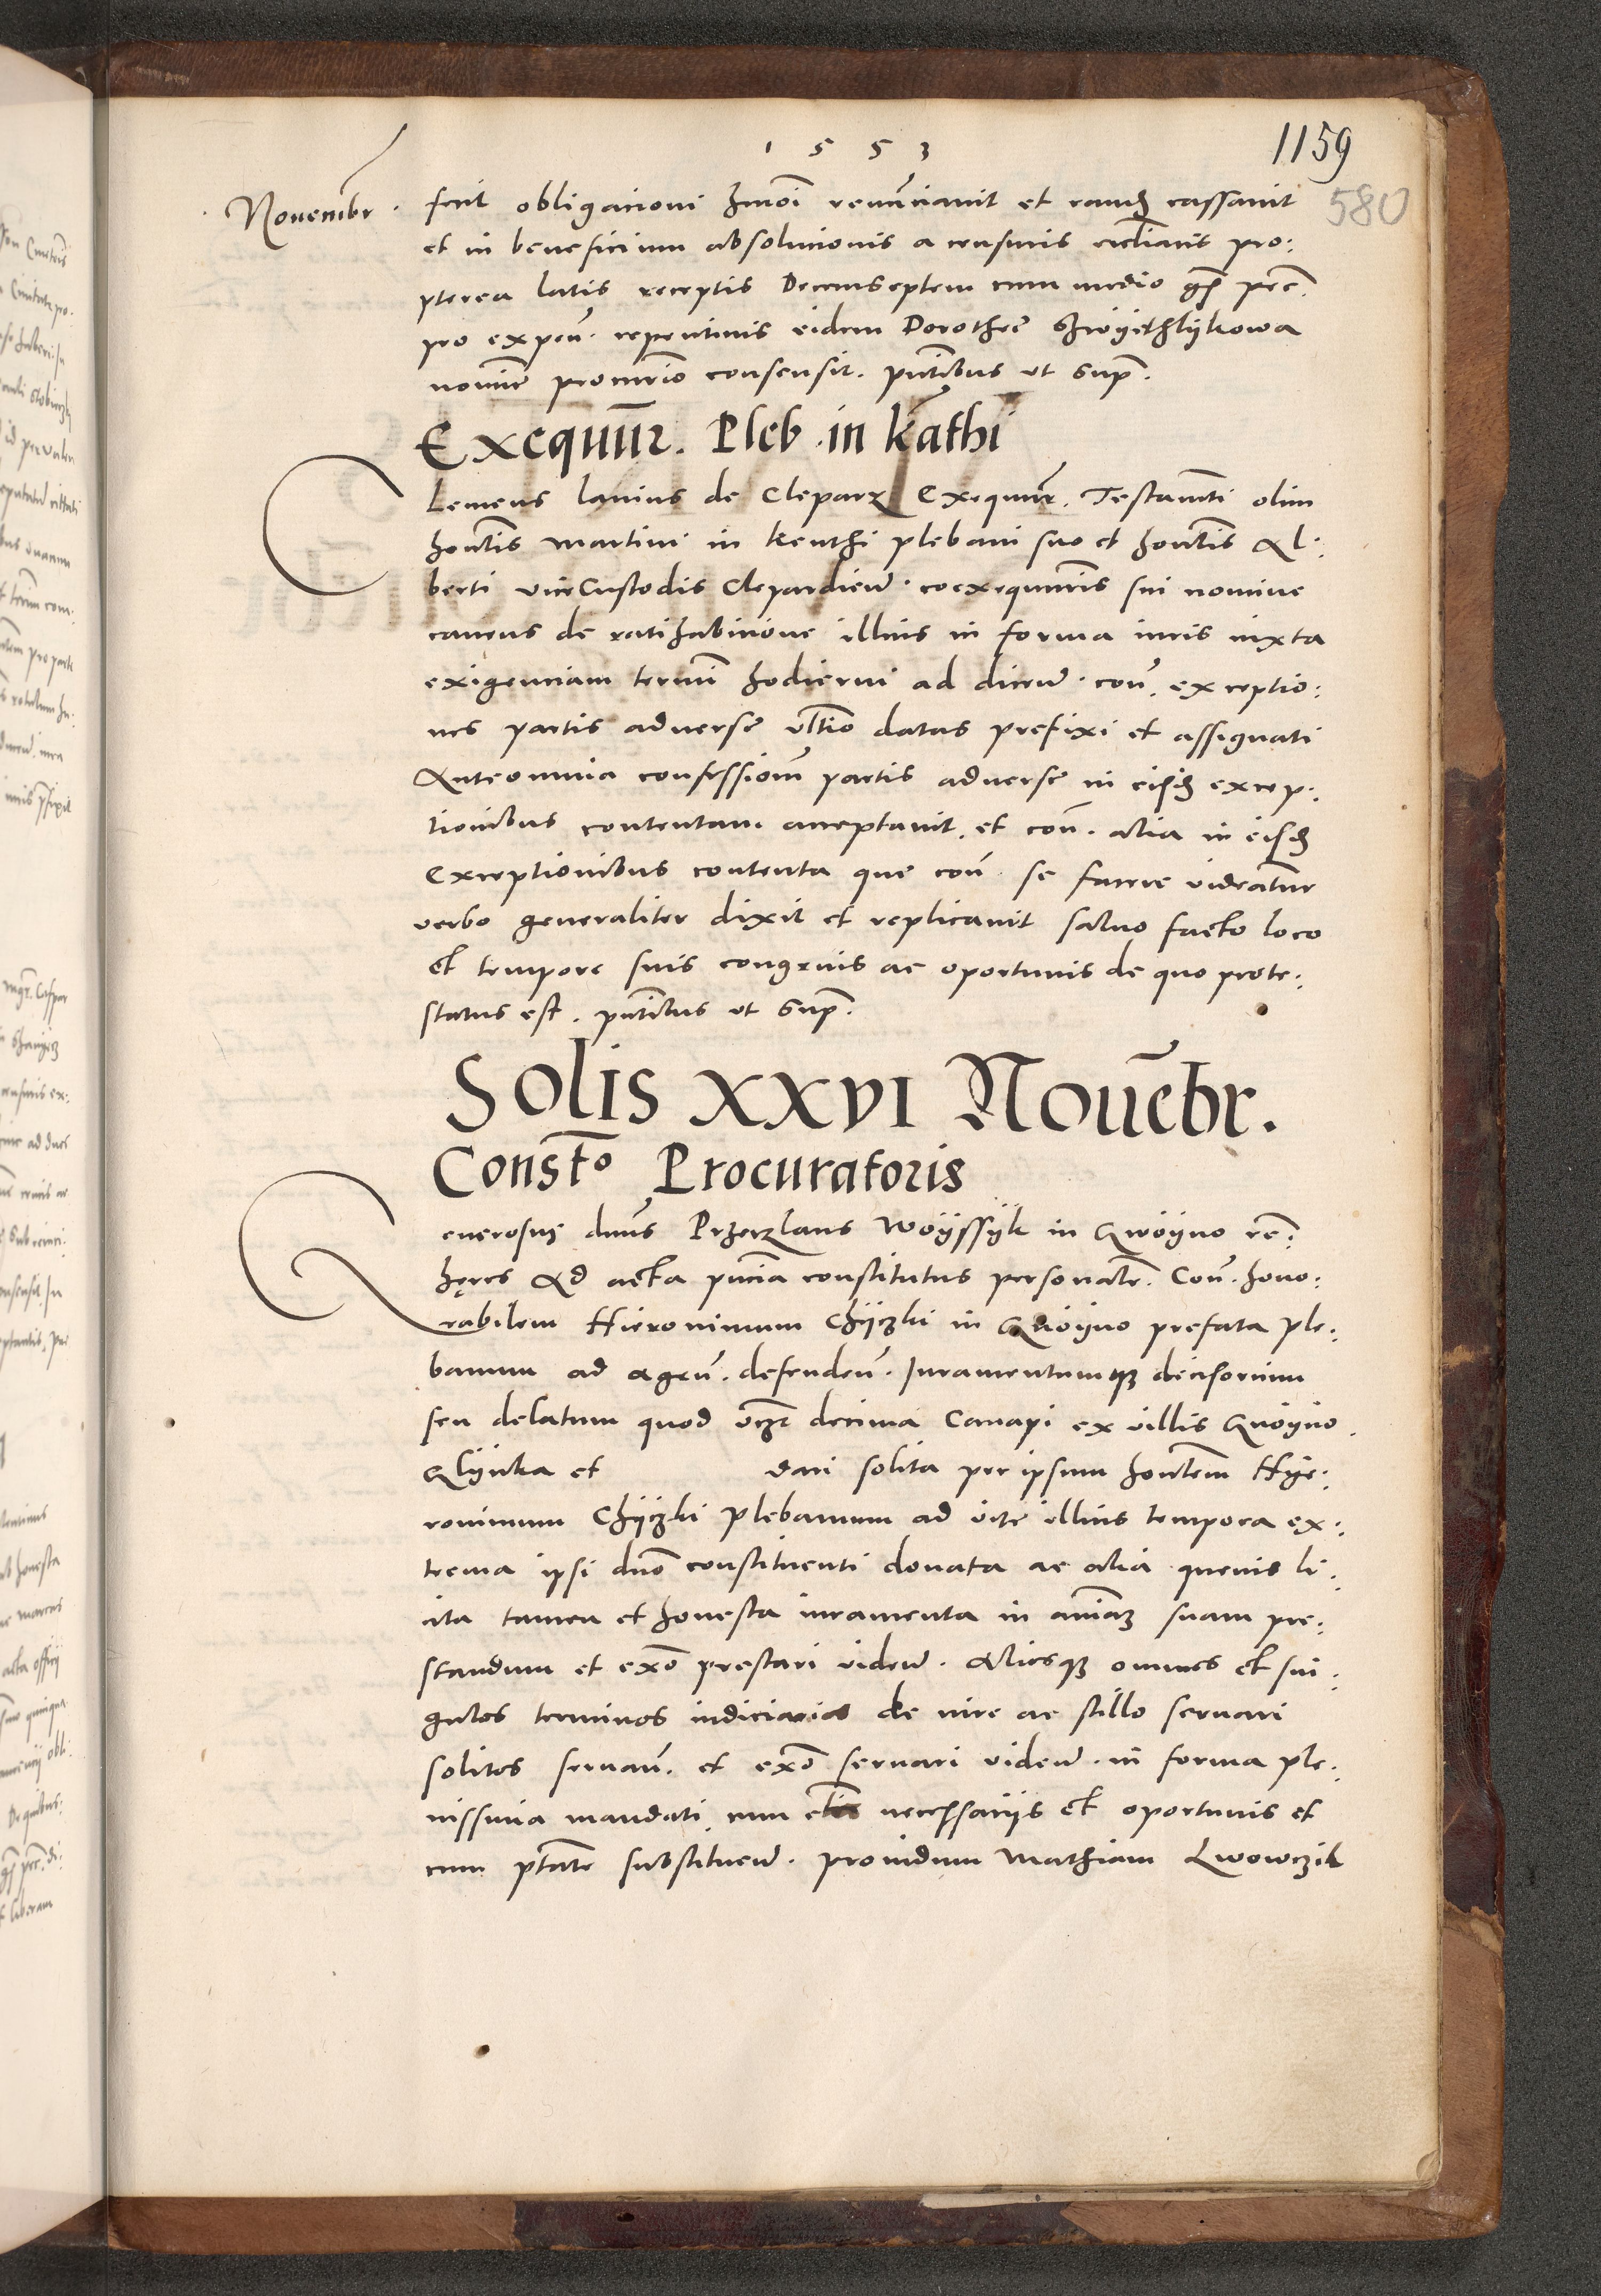 1553
1159
580
Nouembr.
ferit obligacioni hmoi renunciauit et eandem cassauit
et in beneficium absolucionis a censuris eccliaticis pro:
pterea latis receptis Decemseptem cum medio gs pec.
pro expen. repentinis eidem Dorothee
nomine procurio consensit. pntibus vt supra.
Exequutr. Pleb. in kathi
Clemens lanius de Cleparz Exequutr. Testamti olim
hontis Martini in kenthi plebani suo et hontis Al:
berti viceCustodis Clepardien. coexequutoris sui nomine
cauens de ratihabicione illius in forma iuris iuxta
exigenciam termi hodierni ad dicen. con. exceptio:
nes partis aduerse vltio datas prefixi et assignati
Anteomnia confessionem partis aduerse in eisdem excep:
tionibus contentam acceptauit. et con. alia in eisdem
Exceptionibus contenta que con. se facere videantur
verbo generaliter dixit et replicauit saluo facto loco
et tempore suis congruis ac oportunis de quo prote:
status est. pntibus vt supra.
Solis XXVI Nouebr.
Consto Procuratoris
Generosus dnus Przeczlaus Woyssyk in Gwoyno
heres Ad acta pncia constitutus personalr. Con. hono:
rabilem Hieronimum Chyczki in Gwoyno prefata ple:
banum ad agen. defenden. Iuramentumque decisorium
seu delatum quod vczt decima Canapi ex villis Gwoyno
Glynka et dari solita per ipsum hontem Hye:
ronimum Chyczki Plebanum ad vite illius tempora ex:
trema ipsi dno constituenti donata ac alia queuis li:
cita tamen et honesta iuramenta in aniam suam pre:
standum et exo prestari viden. Aliosque omnes et sin:
gulos terminos iudiciarios de iure ac stillo seruari
solitos seruan. et exo seruari viden. in forma ple:
nissima mandati cum necessariis et oportunis et
cum ptate substituen. prouidum Mathiam Lwowczik